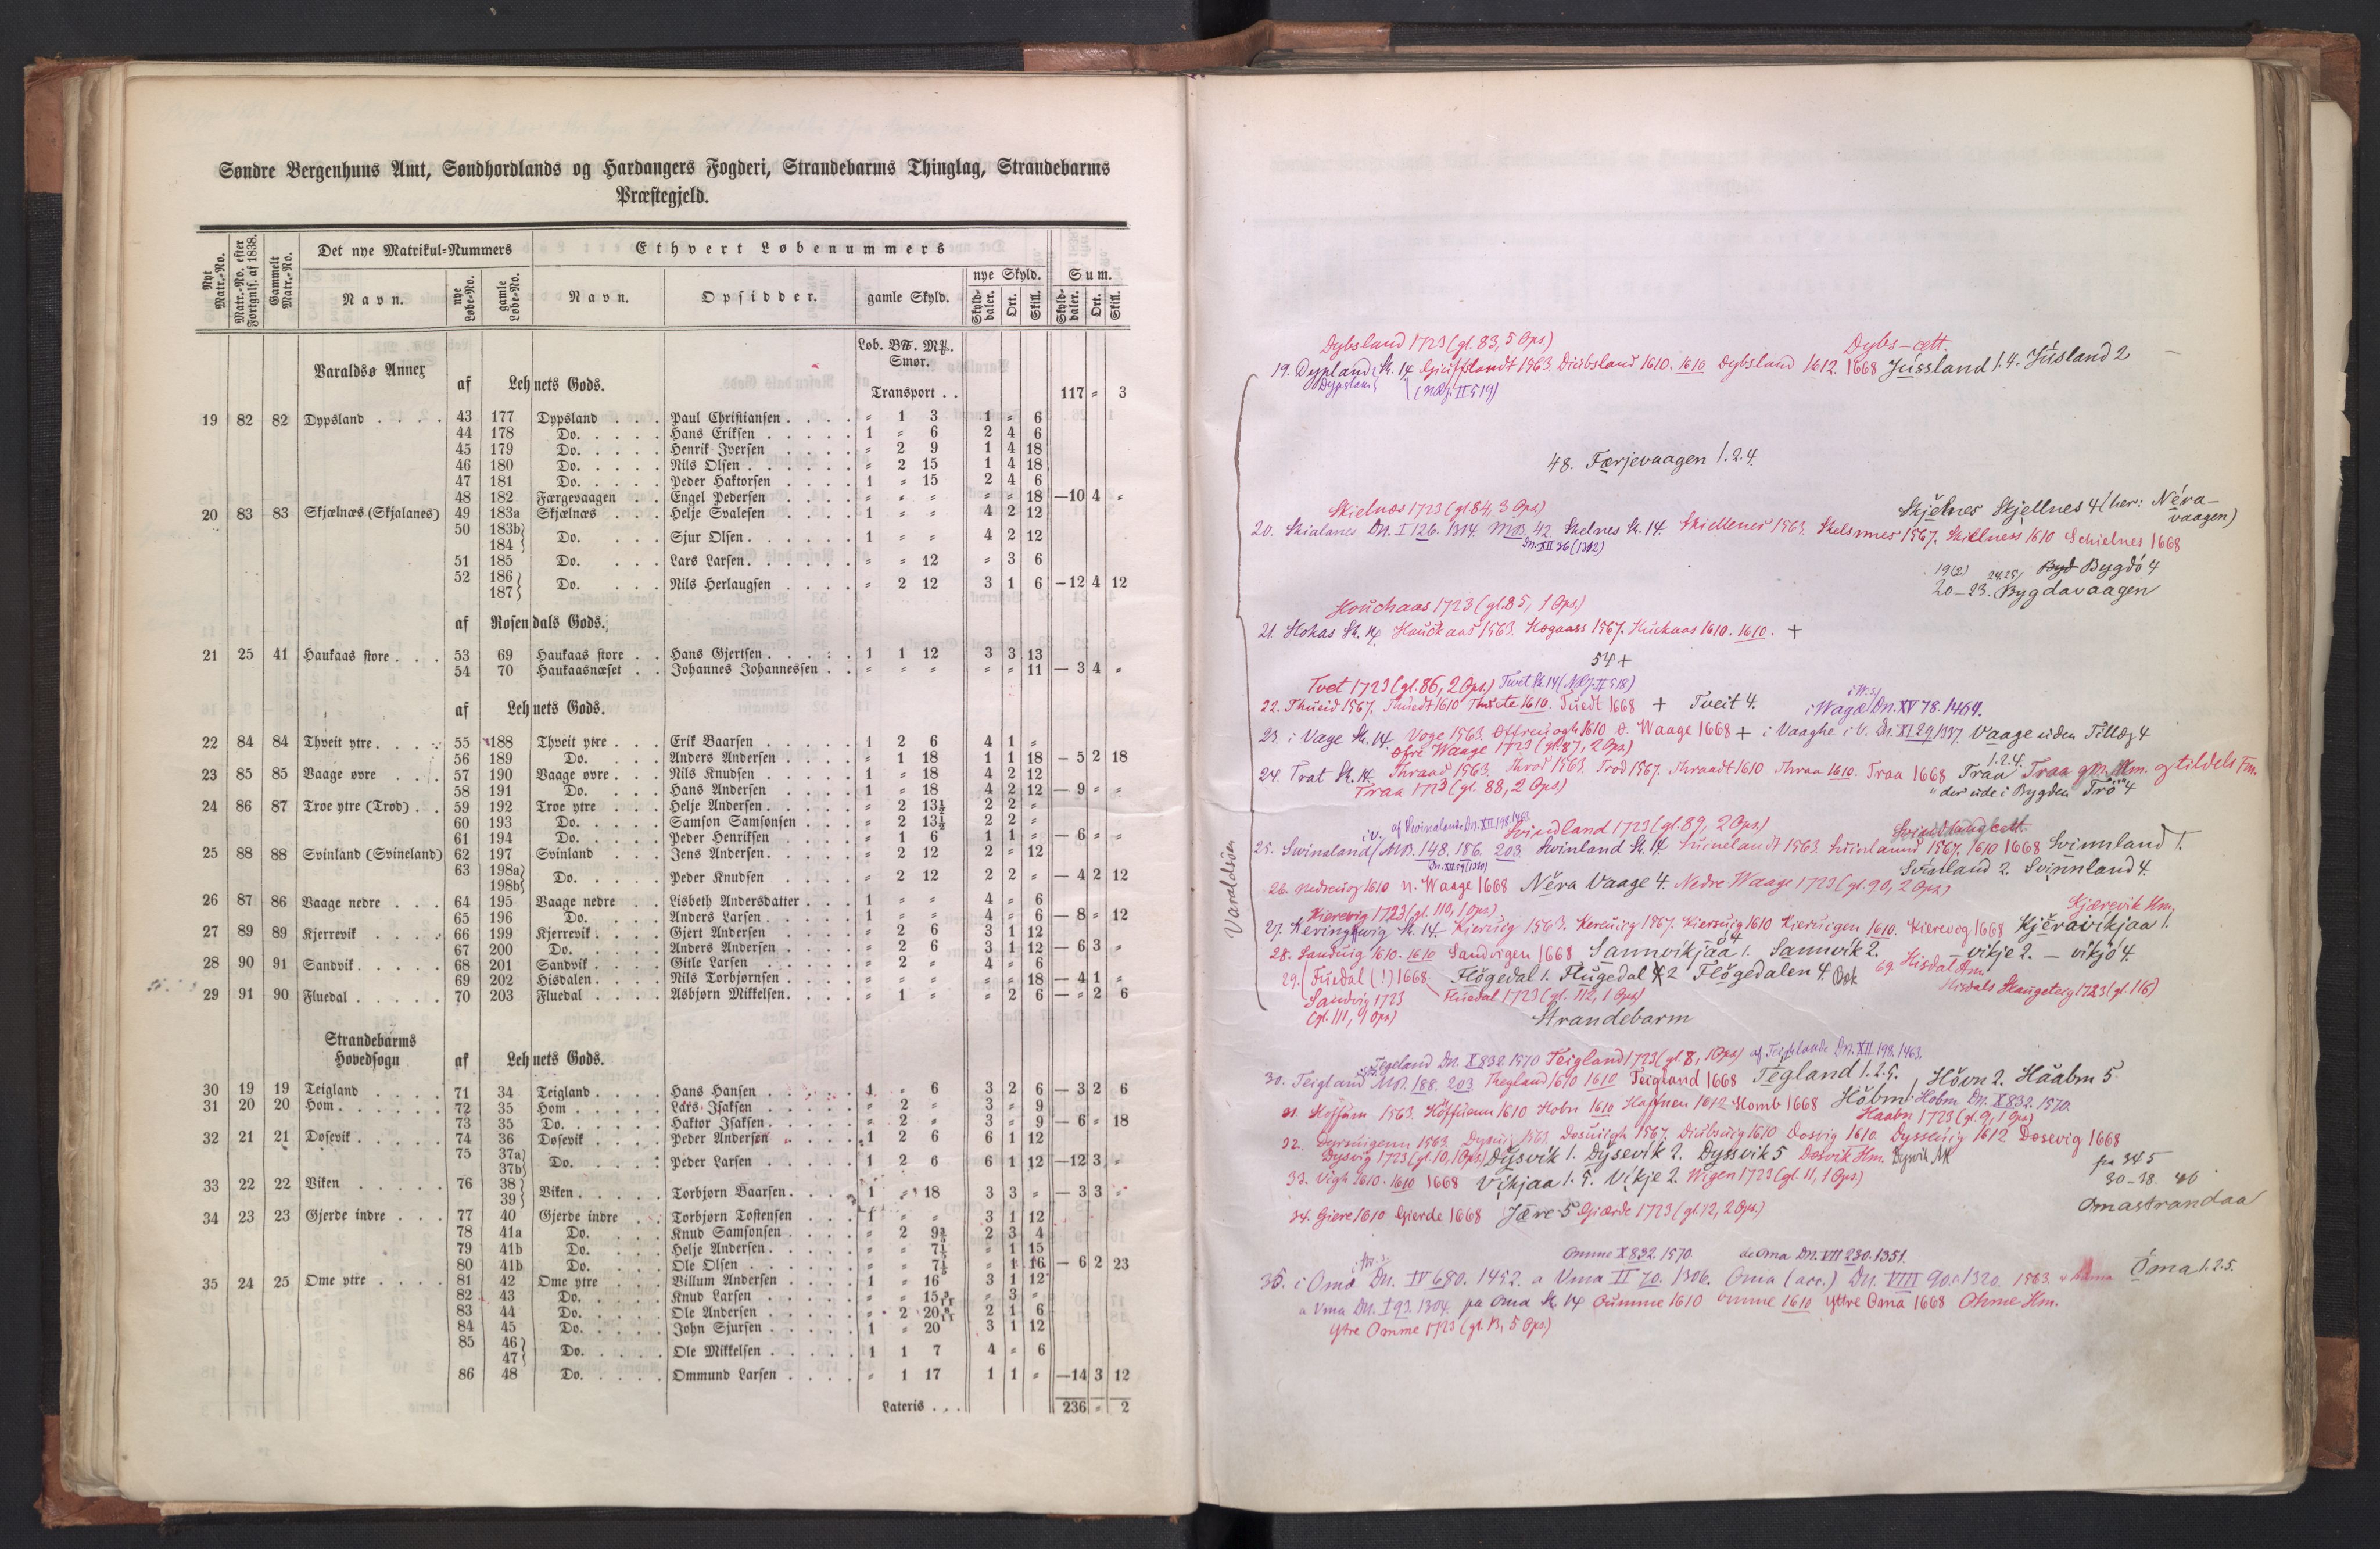 Søndre Bergenhuus Amt, Søndhordlands og Hardangers Fogderi, Strandebarms Thinglag, Strandebarms
Præstegjeld.
Nyt Matr.-No.
Matr.-No. efter Fortegnls. af 1838.
Gammelt Matr.-No.
Det nye Matrikul-Nummers
Navn.
nye Løbe-No.
gamle Løbe-No.
Ethvert Løbenummers
Navn.
Opsidder.
gamle Skyld.
nye Skyld.
Skyld-daler. Ort. Skill.
Sum.
Skyld-daler. Ort. Skill.
Løb. B℔. M℔.
Smør.
Varaldsø Annex
af Lehnets Gods.
Transport . . 117 " 3
19 82 82 Dypsland . . . . 43 177 Dypsland . . . Paul Christiansen . . . . " 1 3 1 " 6
44 178 Do. . . . . Hans Eriksen . . . . . 1 " 6 2 4 6
45 179 Do. . . . . Henrik Iversen . . . . " 2 9 1 4 18
46 180 Do. . . . . Nils Olsen . . . . . . " 2 15 1 4 18
47 181 Do. . . . . Peder Haktorsen . . . . 1 " 15 2 4 6
48 182 Færgevaagen . . Engel Pedersen . . . . " " " " " 18 — 10 4 "
20 83 83 Skjælnæs (Skjalanes) 49 183a Skjælnæs . . . Helje Svalesen . . . . 1 " " 4 2 12
50 183b 184 Do. . . . Sjur Olsen . . . . . . 1 " " 4 2 12
51 185 Do. . . . Lars Larsen . . . . . . " " 12 " 3 6
52 186 187 Do. . . . Nils Herlaugsen . . . . " 2 12 3 1 6 — 12 4 12
af Rosendals Gods.
21 25 41 Haukaas store . . . 53 69 Haukaas store . . Hans Gjertsen . . . . . 1 1 12 3 3 13
54 70 Haukaasnæset . . Johannes Johannessen . . " " " " " 11 — 3 4 "
af Lehnets Gods.
22 84 84 Thveit ytre . . . . 55 188 Thveit ytre . . . Erik Baarsen . . . . . 1 2 6 4 1 "
56 189 Do. . . . Anders Andersen . . . . " 1 18 1 1 18 — 5 2 18
23 85 85 Vaage øvre . . . 57 190 Vaage øvre . . . Nils Knudsen . . . . . 1 " 18 4 2 12
58 191 Do. . . . Hans Andersen . . . . 1 " 18 4 2 12 — 9 " "
24 86 87 Troe ytre (Trod) . . 59 192 Troe ytre . . . Helje Andersen . . . . . " 2 13½ 2 2 "
60 193 Do. . . . . Samson Samsonsen . . . " 2 13½ 2 2 "
61 194 Do. . . . . Peder Henriksen . . . . " 1 6 1 1 " — 6 " "
25 88 88 Svinland (Svineland) 62 197 Svinland . . . Jens Andersen . . . . . " 2 12 2 " 12
63 198a 198b Do. . . . . Peder Knudsen . . . . " 2 12 2 2 " — 4 2 12
26 87 86 Vaage nedre . . . 64 195 Vaage nedre . . Lisbeth Andersdatter . . . 1 " " 4 " 6
65 196 Do. . . . Anders Larsen . . . . . 1 " " 4 " 6 — 8 " 12
27 89 89 Kjerrevik . . . . 66 199 Kjerrevik . . . . Gjert Andersen . . . . " 2 6 3 1 12
67 200 Do. . . . . Anders Andersen . . . . " 2 6 3 1 12 — 6 3 "
28 90 91 Sandvik . . . . . 68 201 Sandvik . . . . Gitle Larsen . . . . . " 2 " 4 " 6
69 202 Hisdalen . . . . Nils Torbjørnsen . . . . " " " " " 18 — 4 1 "
29 91 90 Fluedal . . . . . 70 203 Fluedal . . . . Asbjørn Mikkelsen . . . . " 1 " " 2 6 — " 2 6
Strandebarms
Hovedsogn
af Lehnets Gods.
30 19 19 Teigland . . . . 71 34 Teigland . . . . Hans Hansen . . . . . 1 " 6 3 2 6 — 3 2 6
31 20 20 Hom . . . . . . 72 35 Hom . . . . . Lars Isaksen . . . . . " 2 " 3 " 9
73 35 Do. . . . . . Haktor Isaksen . . . . . " 2 " 3 " 9 — 6 " 18
32 21 21 Dosevik . . . . . 74 36 Dosevik . . . . Peder Andersen . . . . 1 2 6 6 1 12
75 37a 37b Do. . . . . Peder Larsen . . . . . 1 2 6 6 1 12 — 12 3 "
33 22 22 Viken . . . . . 76 38 39 Viken . . . . . Torbjørn Baarsen . . . 1 " 18 3 3 " — 3 3 "
34 23 23 Gjerde indre . . . 77 40 Gjerde indre . . Torbjørn Tostensen . . . 1 " " 3 1 12
78 41a Do. . . . Knud Samsonsen . . . . " 2 9⅗ 2 3 4
79 41b Do. . . . Helje Andersen . . . . . " " 7⅕ " 1 15
80 41b Do. . . . Ole Olsen . . . . . . " " 7⅕ " 1 16 — 6 2 23
35 24 25 Ome ytre . . . . 81 42 Ome ytre . . . Villum Andersen . . . . 1 " 16 3 1 12
82 43 Do. . . . . Knud Larsen . . . . . " " 15 3/11 " 3 "
83 44 Do. . . . . Ole Andersen . . . . . " 2 20 8/11 2 1 6
84 45 Do. . . . . John Sjursen . . . . . 1 " 20 3 1 12
85 46 47 Do. . . . . Ole Mikkelsen . . . . . 1 1 7 4 " 6
86 48 Do. . . . . Ommund Larsen . . . . " 1 17 1 1 " — 14 3 12
Lateris . . . 236 " 2
Dybsland 1723 (gl. 83, 5 Ops.) Dybs- cett.
19. Dypland St. 14 Giuffslandt 1563. Diubsland 1610. 1610 Dybsland 1612. 1668 Jússland 1.4. Júsland 2
Dypsland (NRJ. II 519)
48. Færjevaagen 1.2.4.
Skielnæs 1723 (gl. 84, 3 Ops) Skjelnes Skjellnes 4 (her: Néra-
vaagen)
20. Skialanes Dn. I 126. 1314. MB. 42. Skelnes St. 14. Skiellenes 1563. Skelsnnes 1567. Skillness 1610 Schielnes 1668
Dn. XII 36 (1312)
19(2) 24.25, Bygdö 4
20-23. Bygdavaagen
Houchaas 1723 (gl. 85, 1 Ops.)
21. Hokas St. 14 Houckaas 1563. Hogaass 1567. Huckaas 1610. 1610. +
54 +
Tvet 1723 (gl. 86, 2 Ops.) Tuet St. 14 (NRJ. II 518)
22. Thueid 1567. Thuedt 1610 Thuete 1610. Tuedt 1668 + Tveit 4. i Wagæ Dn. XV 78. 1464.
23. i Vage St. 14. Voge 1563. Offreuogh 1610 o. Waage 1668 + i Vaaghe i V. Dn. XI 29. 1337. Vaage uden Tillæg 4
øfre Waage 1723 (gl. 87, 2 Ops)
24. Trat St. 14. Thraad 1563. Throd 1563. Trod 1567. Thraadt 1610 Thraa 1610. Traa 1668 Traa 1.2.4. Traa gm. Hm. og tildels Fm.
Traa 1723 (gl. 88, 2 Ops.) "der ude i Bygden Trö" 4
i V. af Swinalande Dn. XII 198. 1463 Svindland 1723 (gl. 89, 2 Ops.)
25. Swinaland MB. 148. 186. 203 Swinland St. 14 Suinelandt 1563. Suinlannd 1567. 1610 1668 Svinnland 1.
Svinland 2. Svinnland 4.
26. Nedreuog 1610 n. Waage 1668 Néra Vaage 4. Nedre Waage 1723 (gl. 90, 2 Ops.)
Kierevig 1723 (gl. 110, 1 Ops.) Kjærevik Hm.
27. Keringwig St. 14 Kieruig 1563. Kereuig 1567. Kiersuig 1610 Kieruigen 1610. Kierevog 1668 Kjeravikjaa 1.
28. Sanduig 1610. 1610 Sandvigen 1668 Sannvikjaa 1. Sannvik 2. - vikje 2. - vikjö 4.
29. Fuedal (!) 1668 Flögedal 1. Flugedal 2 Flögedalen 4. 69. Hisdal Hm.
Sandvig 1723 Fluedal 1723 (gl. 112, 1 Ops) Hisdals Skaugeteig 1723 (gl. 116)
(gl. 111, 1 Ops)
Varaldsöen
Strandebarm
Tegeland Dn. X 832. 1570 Teigland 1723 (gl. 8, 1 Ops) af Teighlande Dn. XII 198. 1463.
30. Teigland MB. 188. 203 Thegland 1610 1610 Teigland 1668 Tégland 1.2.5. Hövn 2. Hâabm 5
31. Hoffum 1563. Höffuenn 1610 Hobn 1610 Haffnen 1612 Homb 1668 Höbm 1. Hobm Dn. X 832. 1570.
Haabn 1723 (gl. 9, 1 Ops)
32. Dyrsuigenn 1563. Dysuig 1563. Dosuigh 1567. Diubsuig 1610 Dosvig 1610. Dysseuig 1612 Dosevig 1668
Dysvig 1723 (gl. 10, 1 Ops) Dysvik 1. Dysevik 2. Dyssvik 5 Dosvik Hm. Dysvik AK
fra 34 5
33. Vigh 1610. 1610 1668 Vikjaa 1.5. Vikje 2. Wigen 1723 (gl. 11, 1 Ops.) 30-38. 40
Omastrandaa
34. Giere 1610 Gierde 1668 Jære 5 Giærde 1723 (gl. 12, 2 Ops.)
Omme X 832. 1570. de Oma Dn. VII 230. 1351.
35. i Oma Dn. IV 680. 1452. a Vma II 70. 1306. Oma (acc.) Dn. VIII 90. a 1320. 1563. Óma 1.2.5.
a Vma Dn. I 93. 1304. pa Oma St. 14 Oumme 1610 omme 1610 yttre Oma 1668 Ohme Hm.
ytre Omme 1723 (gl. 13, 5 Ops.)